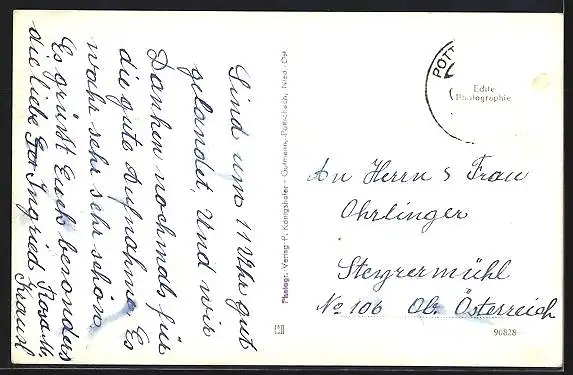 Sind um 11 Uhr gut
gelandet. Und wir
Danken nochmals für
die gute Aufnahme. Es
wahr sehr sehr schön.
Es grüßt Euch besonders
die liebe Ingried Rosa M.
Krausl
Photogr.-Verlag P. Königshofer - Gutmann, Pottschach, Nied.-Öst.
POTT
Echte
Photographie
An Herrn & Frau
Ohrlinger
Steyrermühl
No 106 Ob. Österreich
90828